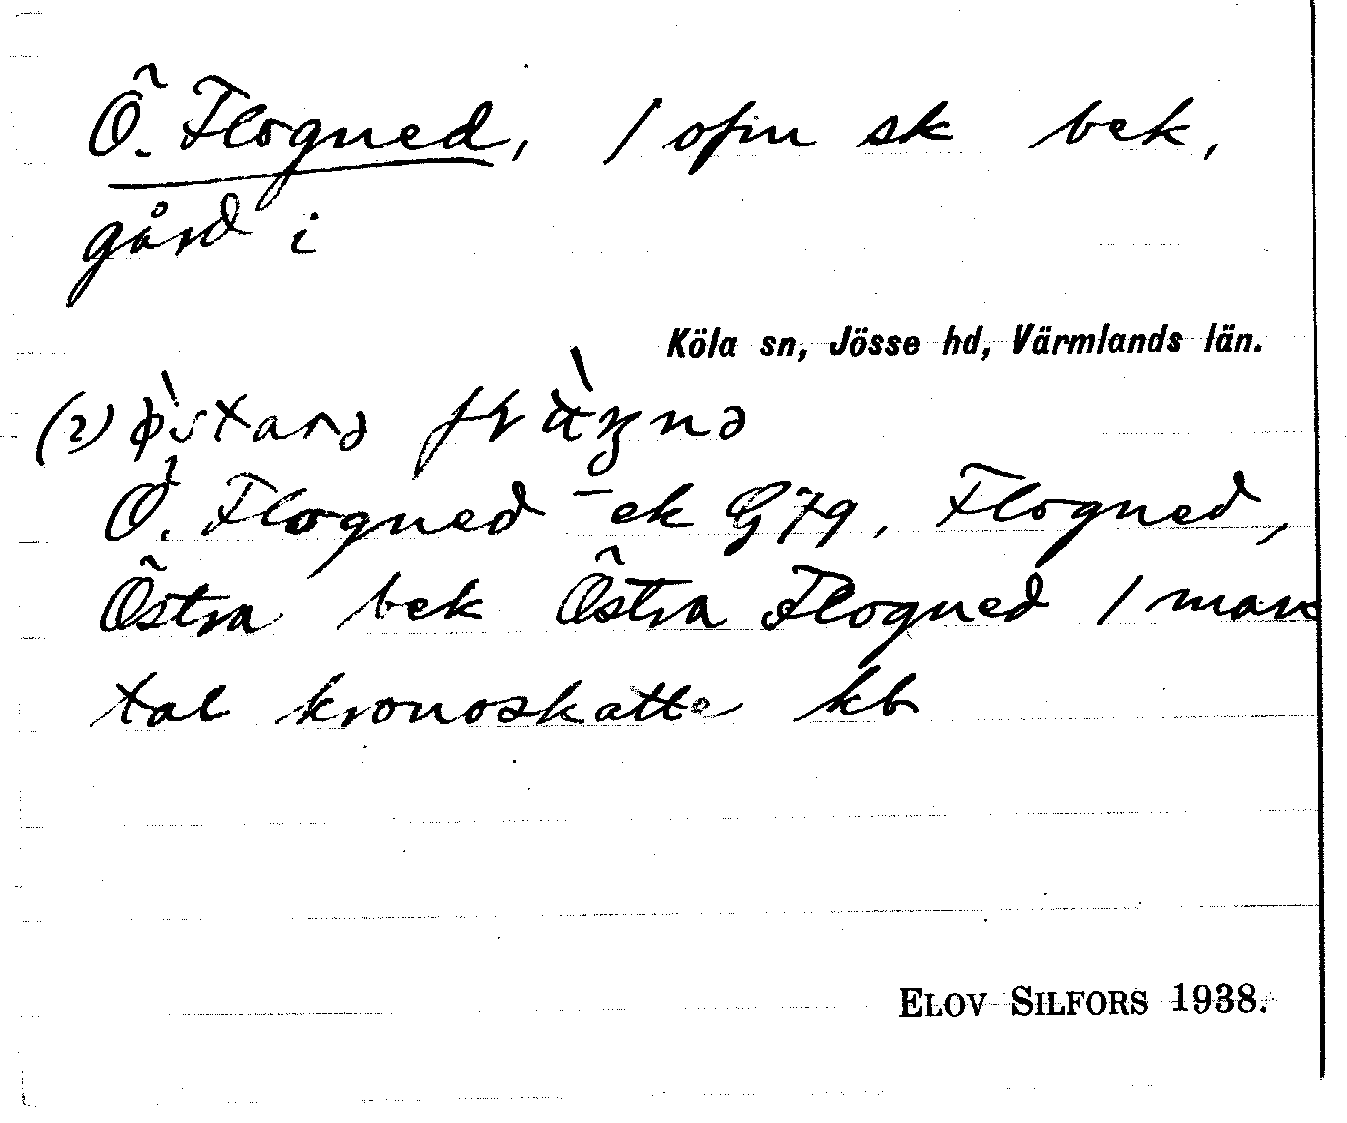 Ö. Flogned, 1 ofm sk bek,
gård i
Köla sn, Jösse hd, Värmlands län.
(2)
Ö. Flogned -ek G79. Flogned,
Östra bek Östra Flogned 1 man
tal kronoskatte kb
ELOV SILFORS 1938.